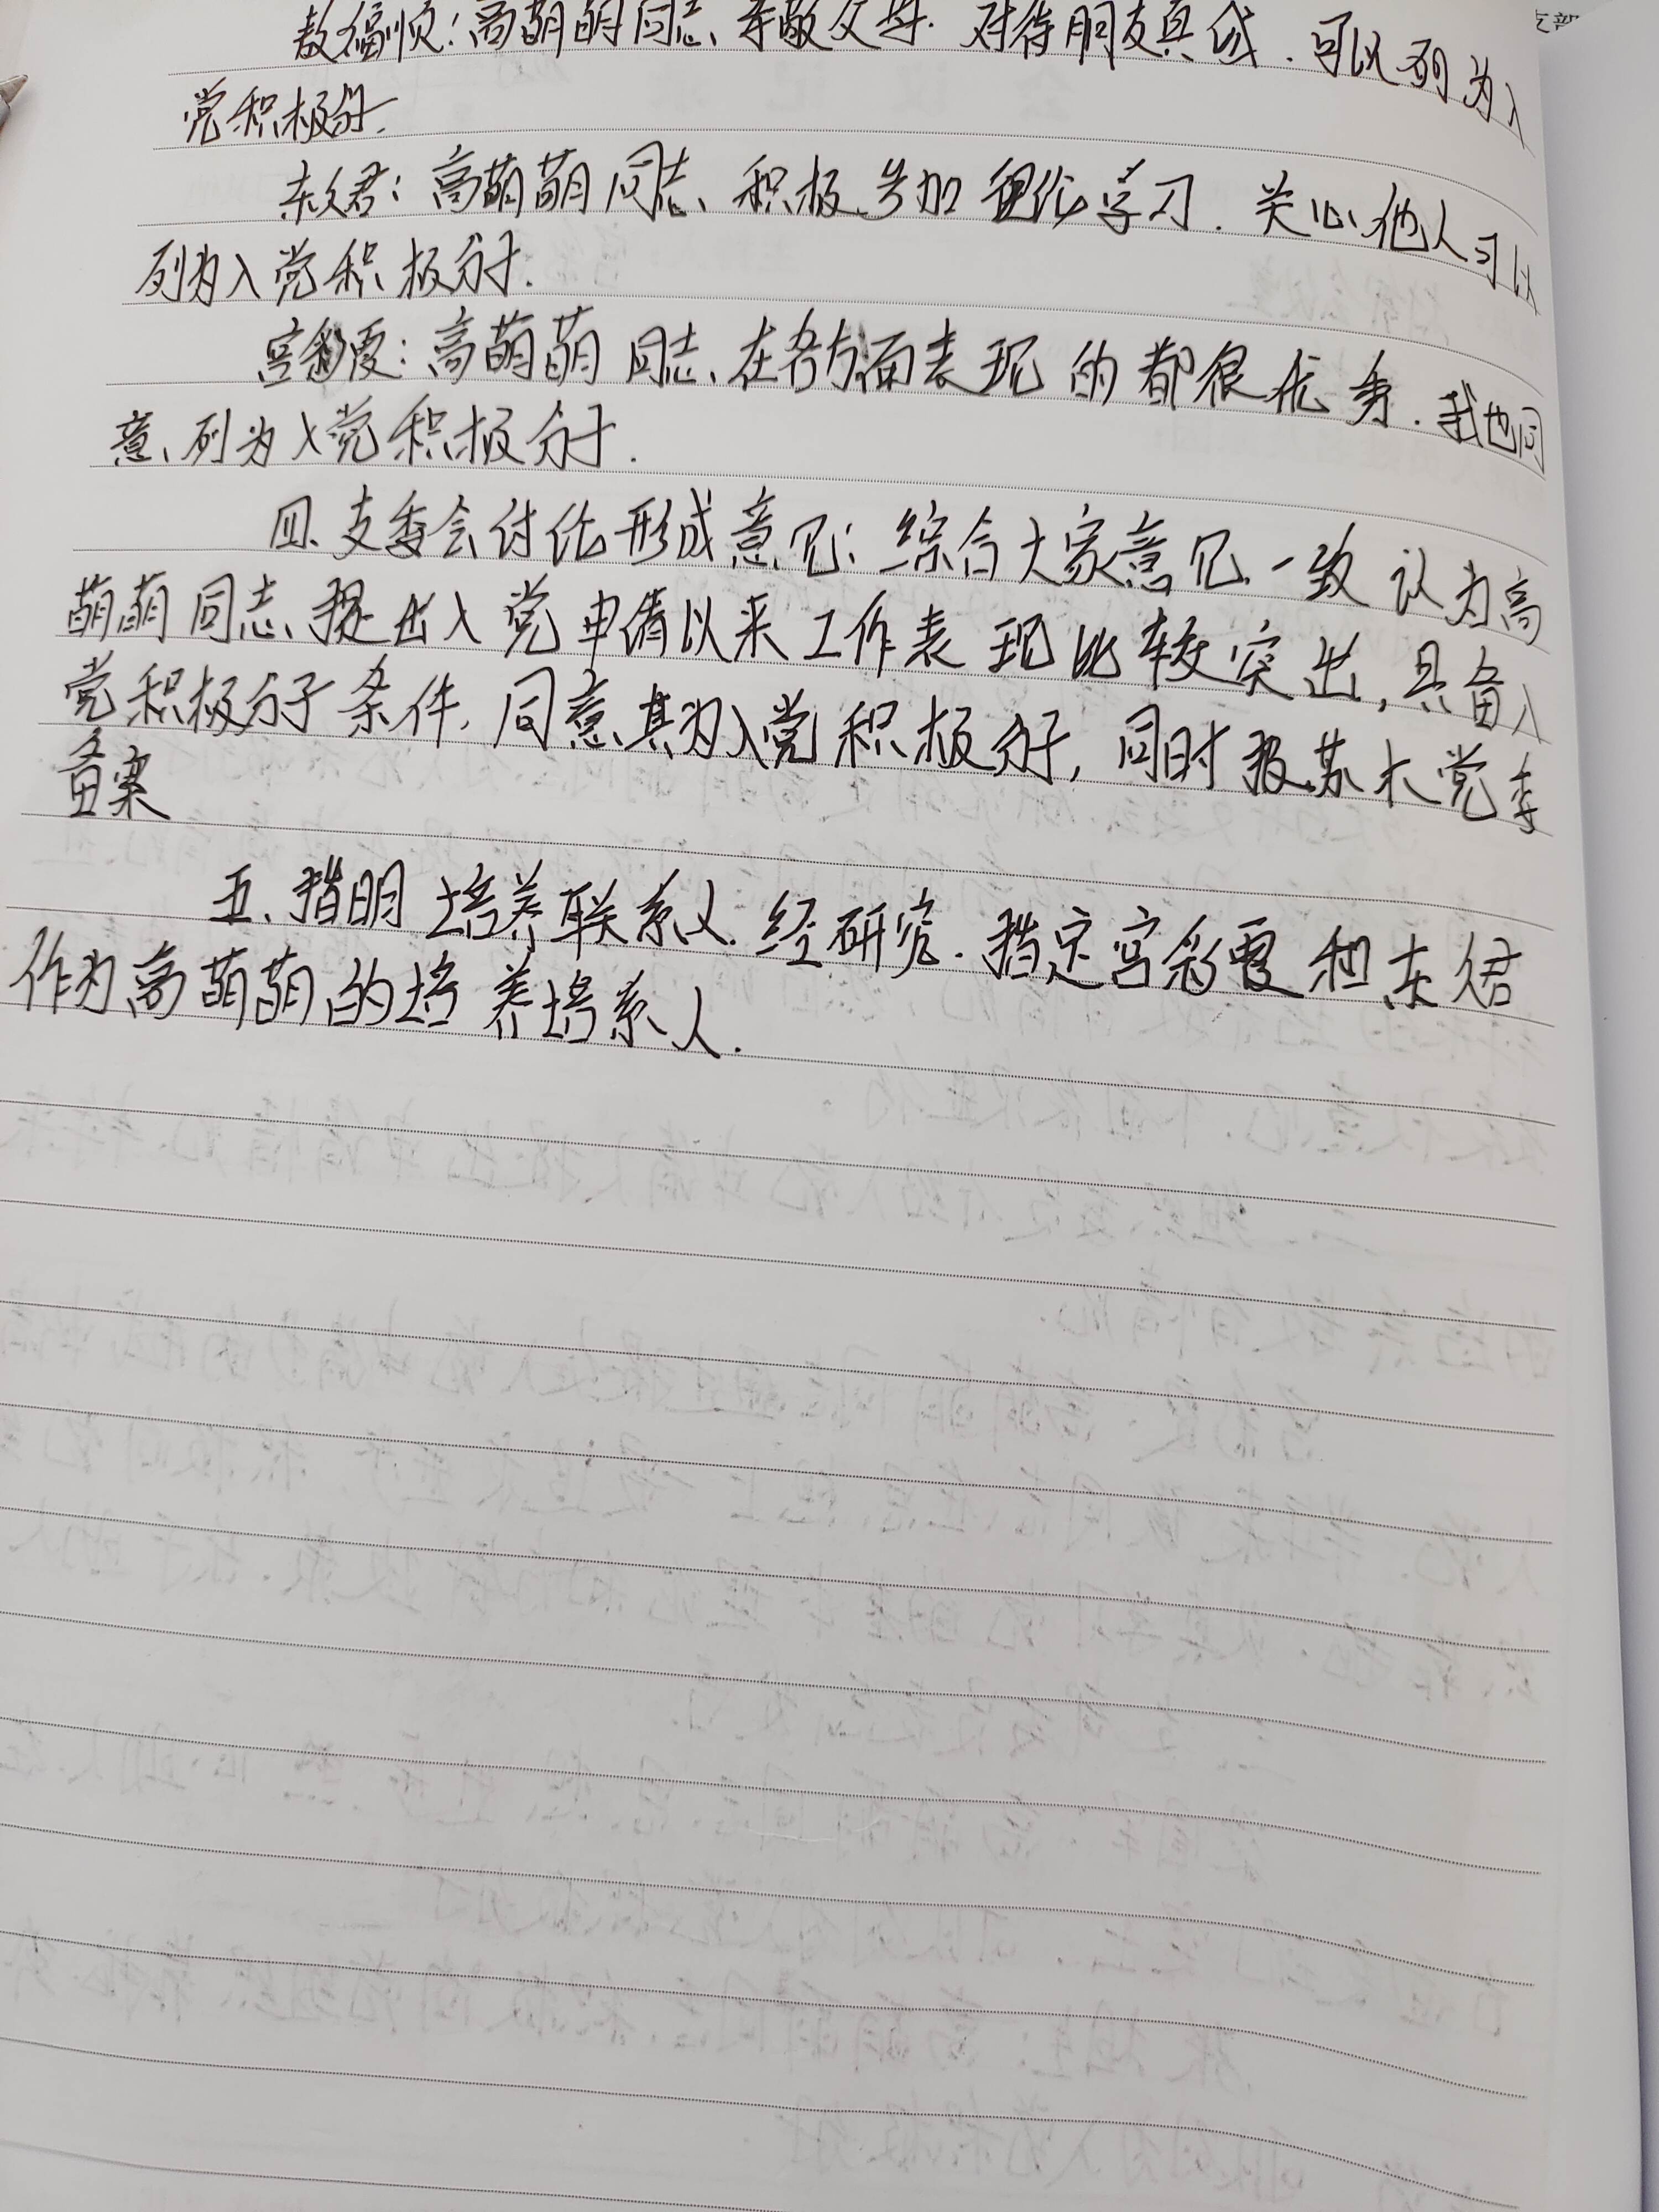 敖福顺:高萌萌同志、孝敬父母.对待朋友真诚.可以列为入
党积极分子.
东文君:高萌萌同志、积极参加理论学习.关心他人可以
列为入党积极分子.
宫彩霞:高萌萌同志、在各方面表现的都很优秀.我也同
意、列为入党积极分子.
四、支委会讨论形成意见:综合大家意见、一致认为高
萌萌同志、提出入党申请以来工作表现比较突出,具备入
党积极分子条件,同意其为入党积极分子,同时报苏木党委
备案
五、指明培养联系人.经研究.指定宫彩霞和东文君
作为高萌萌的培养培系人.
支部